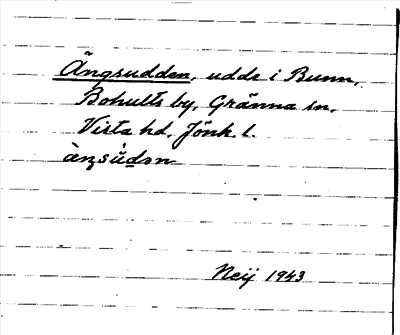 Ängsudden, udde i Bunn,
Bohults by, Gränna sn,
Vista hd, Jönk. l.
Neij 1943